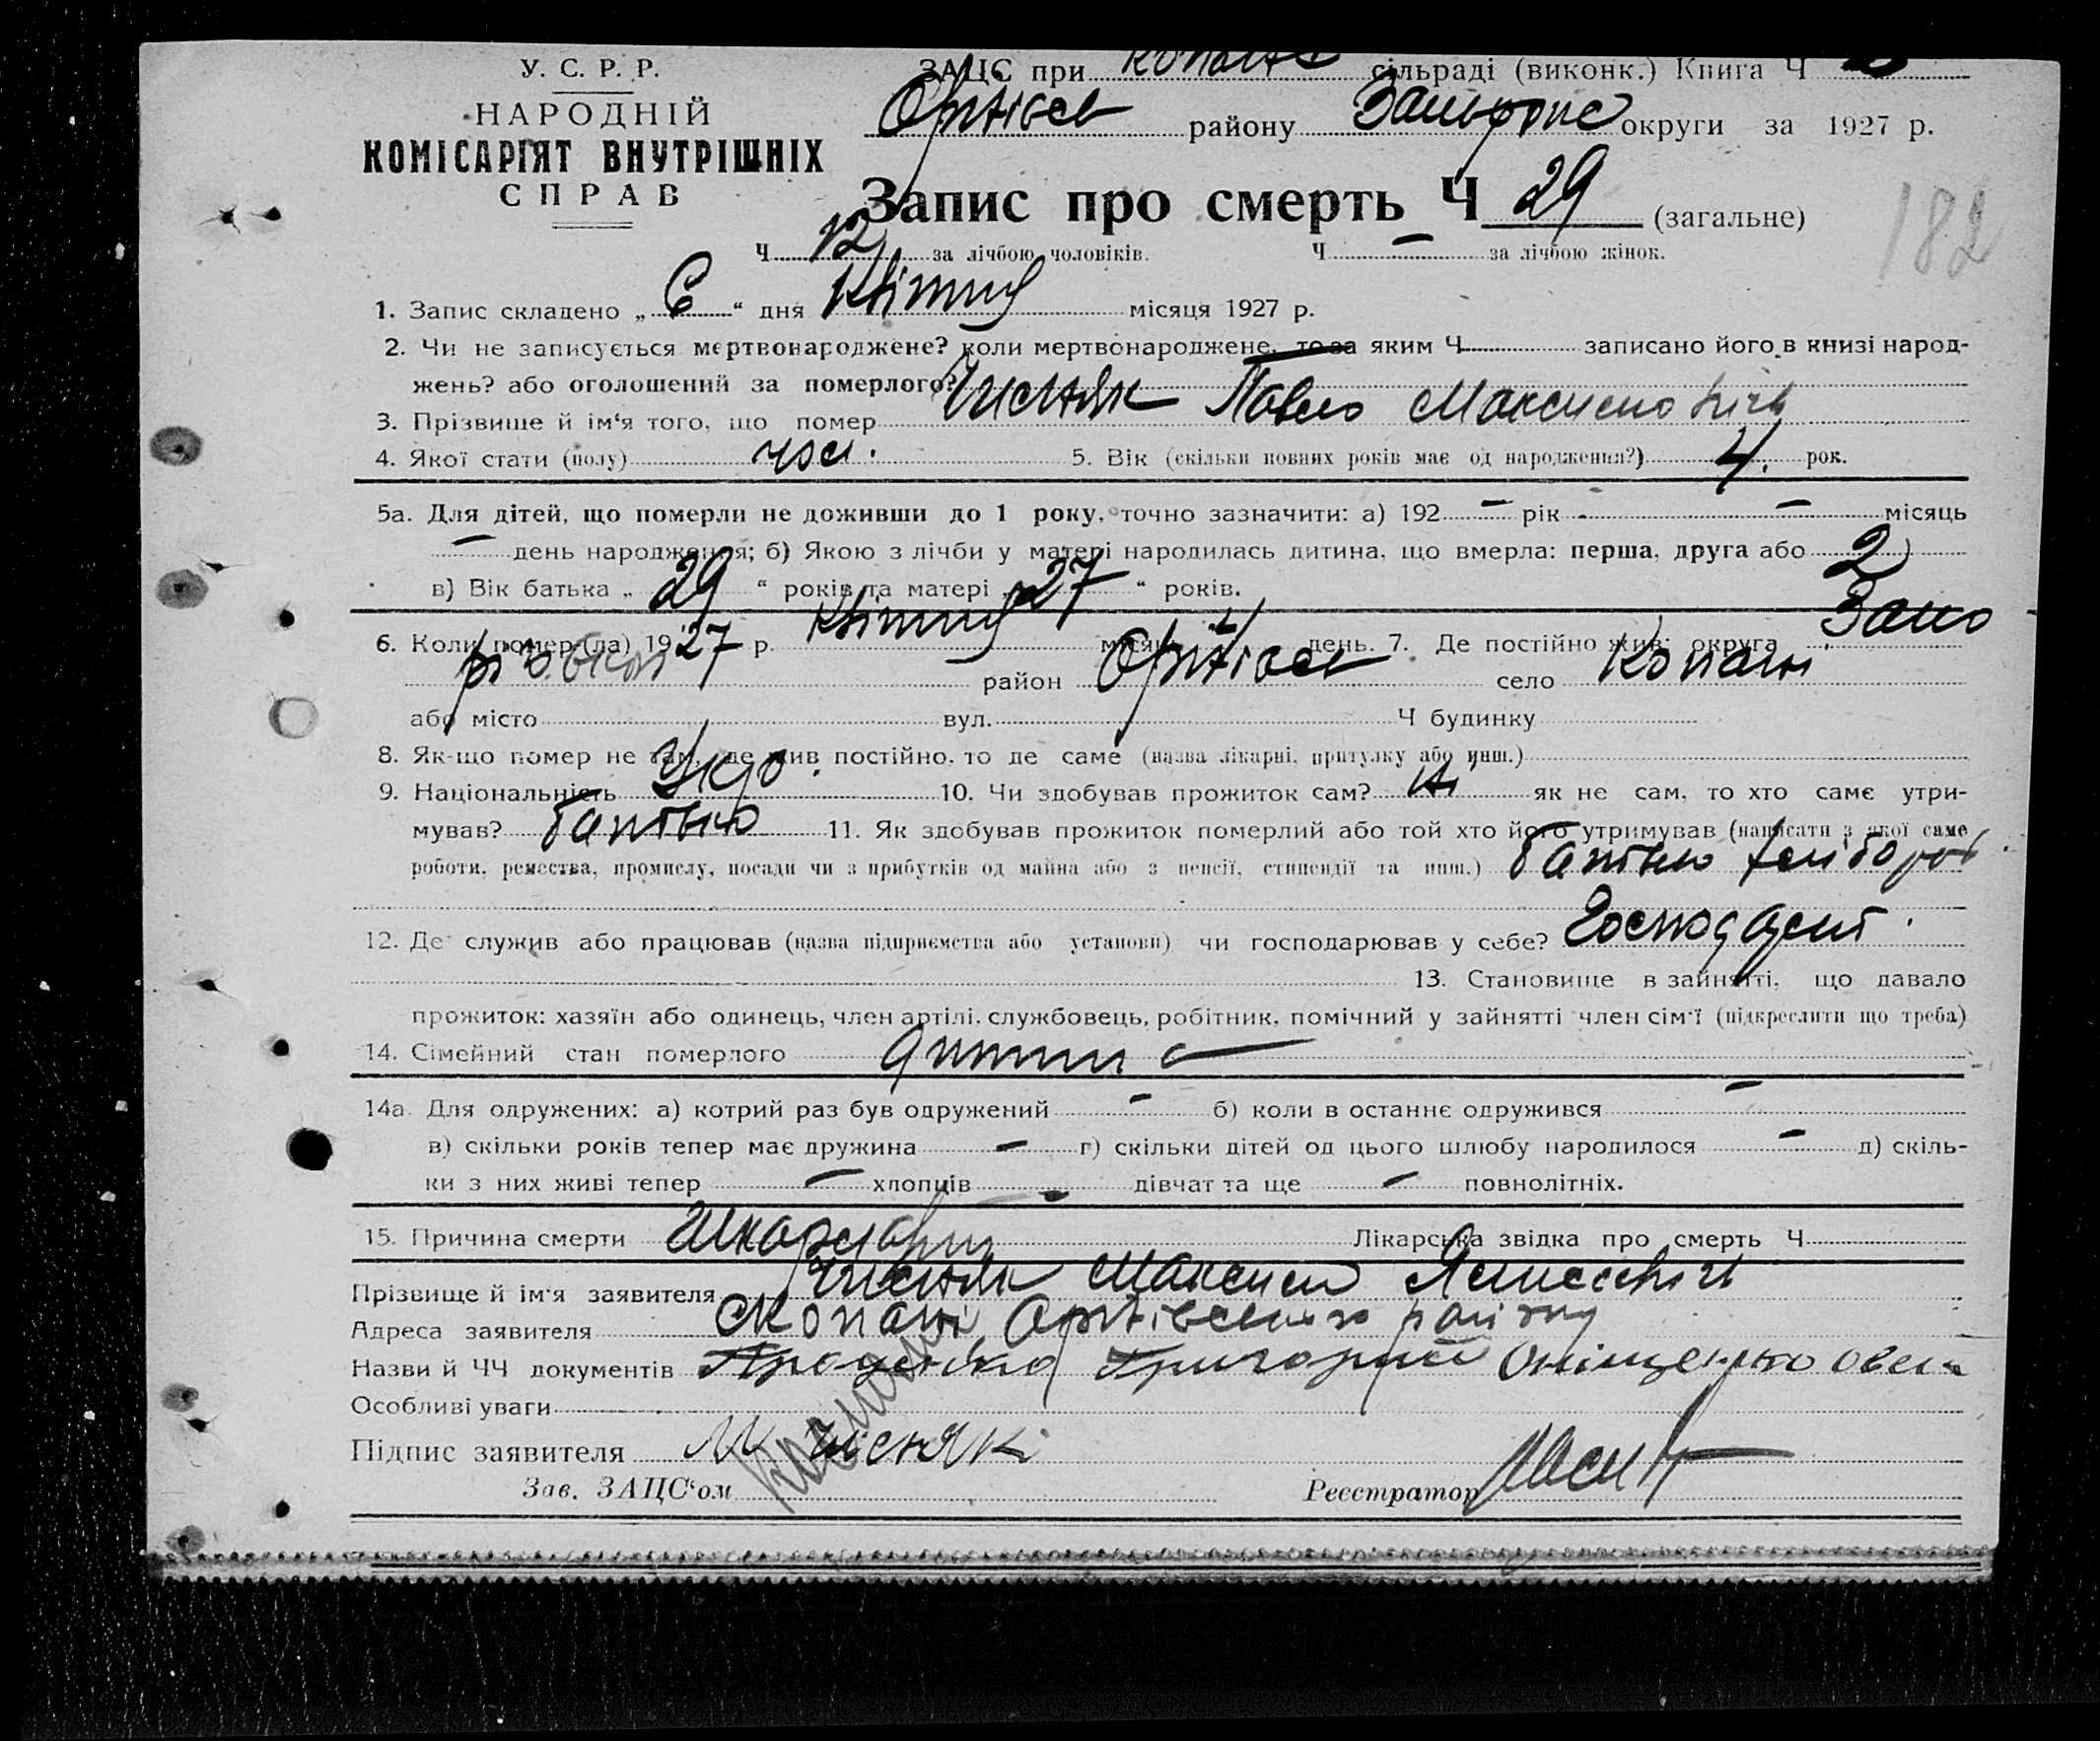 У. С. Р. Р.
НАРОДНІЙ
КОМІСАРІЯТ ВНУТРІШНІХ
СПРАВ
ЗАЦС при Копанс сільраді (виконк.) Книга Ч
Оріхівсь району Запоріж округи за 1927 р.
Запис про смерть Ч 29 (загальне)
182
Ч 12 за лічбою чоловіків. Ч — за лічбою жінок.
1. Запис складено „ 6 “ дня Квітня місяця 1927 р.
2. Чи не записується мертвонароджене? коли мертвонароджене, то за яким Ч записано його в книзі народ-
жень? або оголошений за померлого?
3. Прізвище й ім'я того, що помер Чисняк Павло Максимович
4. Якої стати (полу) чол. 5. Вік (скільки повних років має од народження?) 4. рок.
5а. Для дітей, що померли не доживши до 1 року, точно зазначити: а) 192 — рік — місяць
— день народження; б) Якою з лічби у матері народилась дитина, що вмерла: перша, друга або 2
в) Вік батька „ 29 “ років та матері „ 27 “ років.
6. Коли помер (ла) 1927 р. Квітня місяць день. 7. Де постійно жив: округа Запо
район село Копани
або місто вул. Ч будинку
8. Як-що помер не там, де жив постійно, то де саме (назва лікарні, притулку або инш.)
9. Національність Укр. 10. Чи здобував прожиток сам? як не сам, то хто саме утри-
мував? батько 11. Як здобував прожиток померлий або той хто його утримував (написати з якої саме
роботи, ремества, промислу, посади чи з прибутків од майна або з пенсії, стипендії та инш.) батько хлібороб
12. Де служив або працював (назва підприємства або установи) чи господарював у себе?
13. Становище в зайнятті, що давало
прожиток: хазяїн або одинець, член артілі, службовець, робітник, помічний у зайнятті член сім'ї (підкреслити що треба)
14. Сімейний стан померлого дитина
14а. Для одружених: а) котрий раз був одружений — б) коли в останнє одружився —
в) скільки років тепер має дружина — г) скільки дітей од цього шлюбу народилося — д) скіль-
ки з них живі тепер — хлопців — дівчат та ще — повнолітніх.
15. Причина смерти Шкарлатин Лікарська звідка про смерть Ч
Прізвище й ім'я заявителя Чисняк Максим
Адреса заявителя с Копани Оріхівського району
Назви й ЧЧ документів Григорий Оніщенко
Особливі уваги
Підпис заявителя М Чисняк
Зав. ЗАЦС'ом Реєстратор